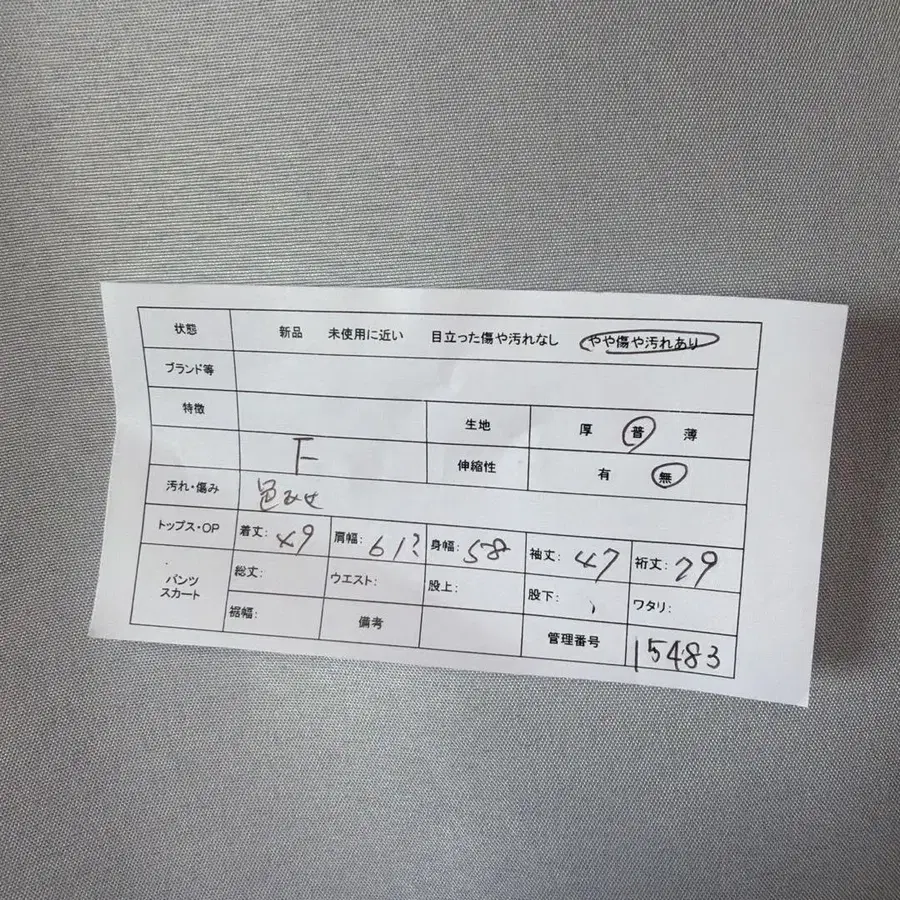 状態 新品 未使用に近い 目立った傷や汚れなし やや傷や汚れあり
ブランド等
特徴 生地 厚 普 薄
F 伸縮性 有 無
汚れ・傷み 色みせ
トップス・OP 着丈: 49 肩幅: 61? 身幅: 58 袖丈: 47 裄丈: 29
パンツ
スカート
総丈: ウエスト: 股上: 股下: ワタリ:
裾幅: 備考 管理番号 15483